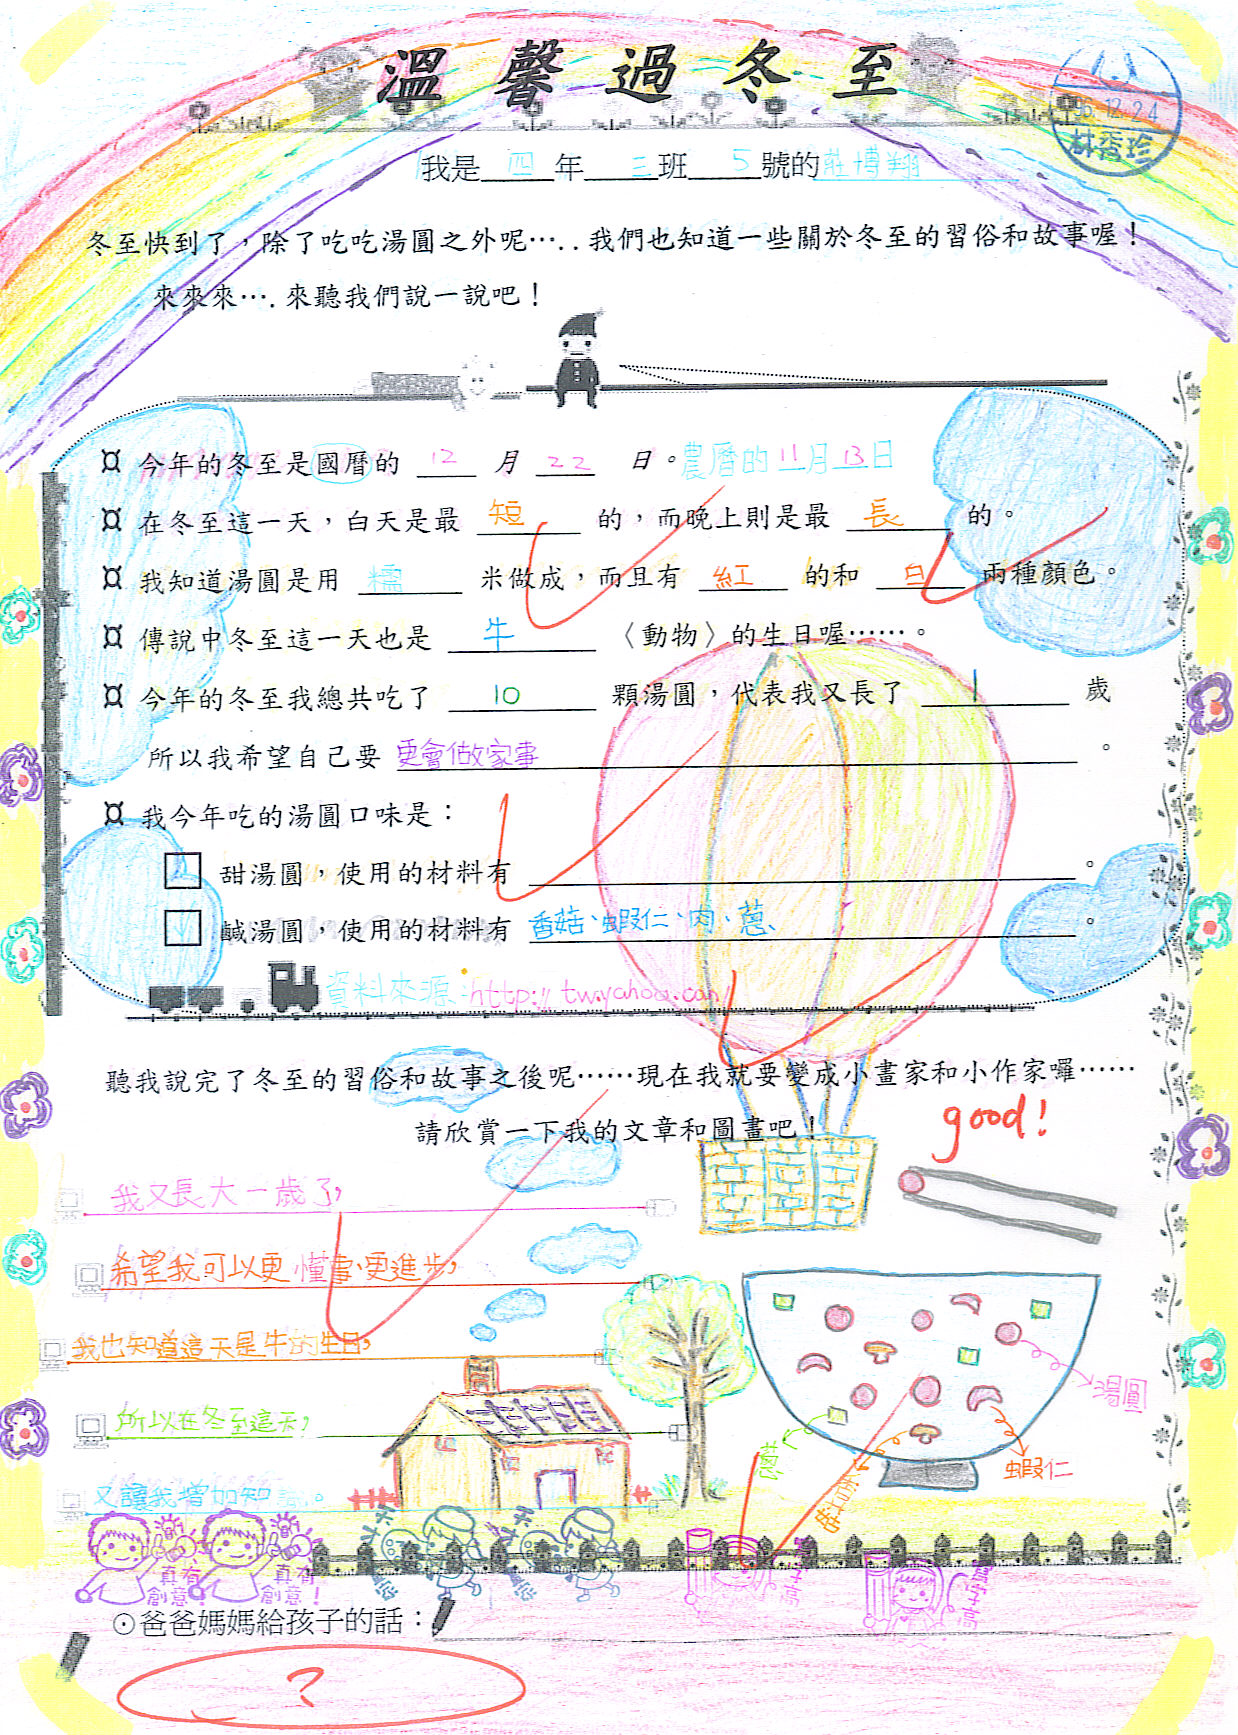 溫馨過冬至
95.12.24
林秀珍
我是四年三班5號的莊博翔
冬至快到了，除了吃吃湯圓之外呢…..我們也知道一些關於冬至的習俗和故事喔！
來來來….來聽我們說一說吧！
¤ 今年的冬至是國曆的 12 月 22 日。農曆的11月13日
¤ 在冬至這一天，白天是最 短 的，而晚上則是最 長 的。
¤ 我知道湯圓是用 糯 米做成，而且有 紅 的和 白 兩種顏色。
¤ 傳說中冬至這一天也是 牛 〈動物〉的生日喔……。
¤ 今年的冬至我總共吃了 10 顆湯圓，代表我又長了 1 歲
所以我希望自己要 更會做家事 。
¤ 我今年吃的湯圓口味是：
甜湯圓，使用的材料有 。
鹹湯圓，使用的材料有 香菇、蝦仁、肉、蔥、 。
資料來源：http://tw.yahoo.can/
聽我說完了冬至的習俗和故事之後呢……現在我就要變成小畫家和小作家囉……
請欣賞一下我的文章和圖畫吧！
good!
我又長大一歲了，
希望我可以更懂事、更進步，
我也知道這天是牛的生日，
所以在冬至這天，
又讓我增加知識。
湯圓
蝦仁
香菇
真有創意！
真有創意！
⊙爸爸媽媽給孩子的話：
?